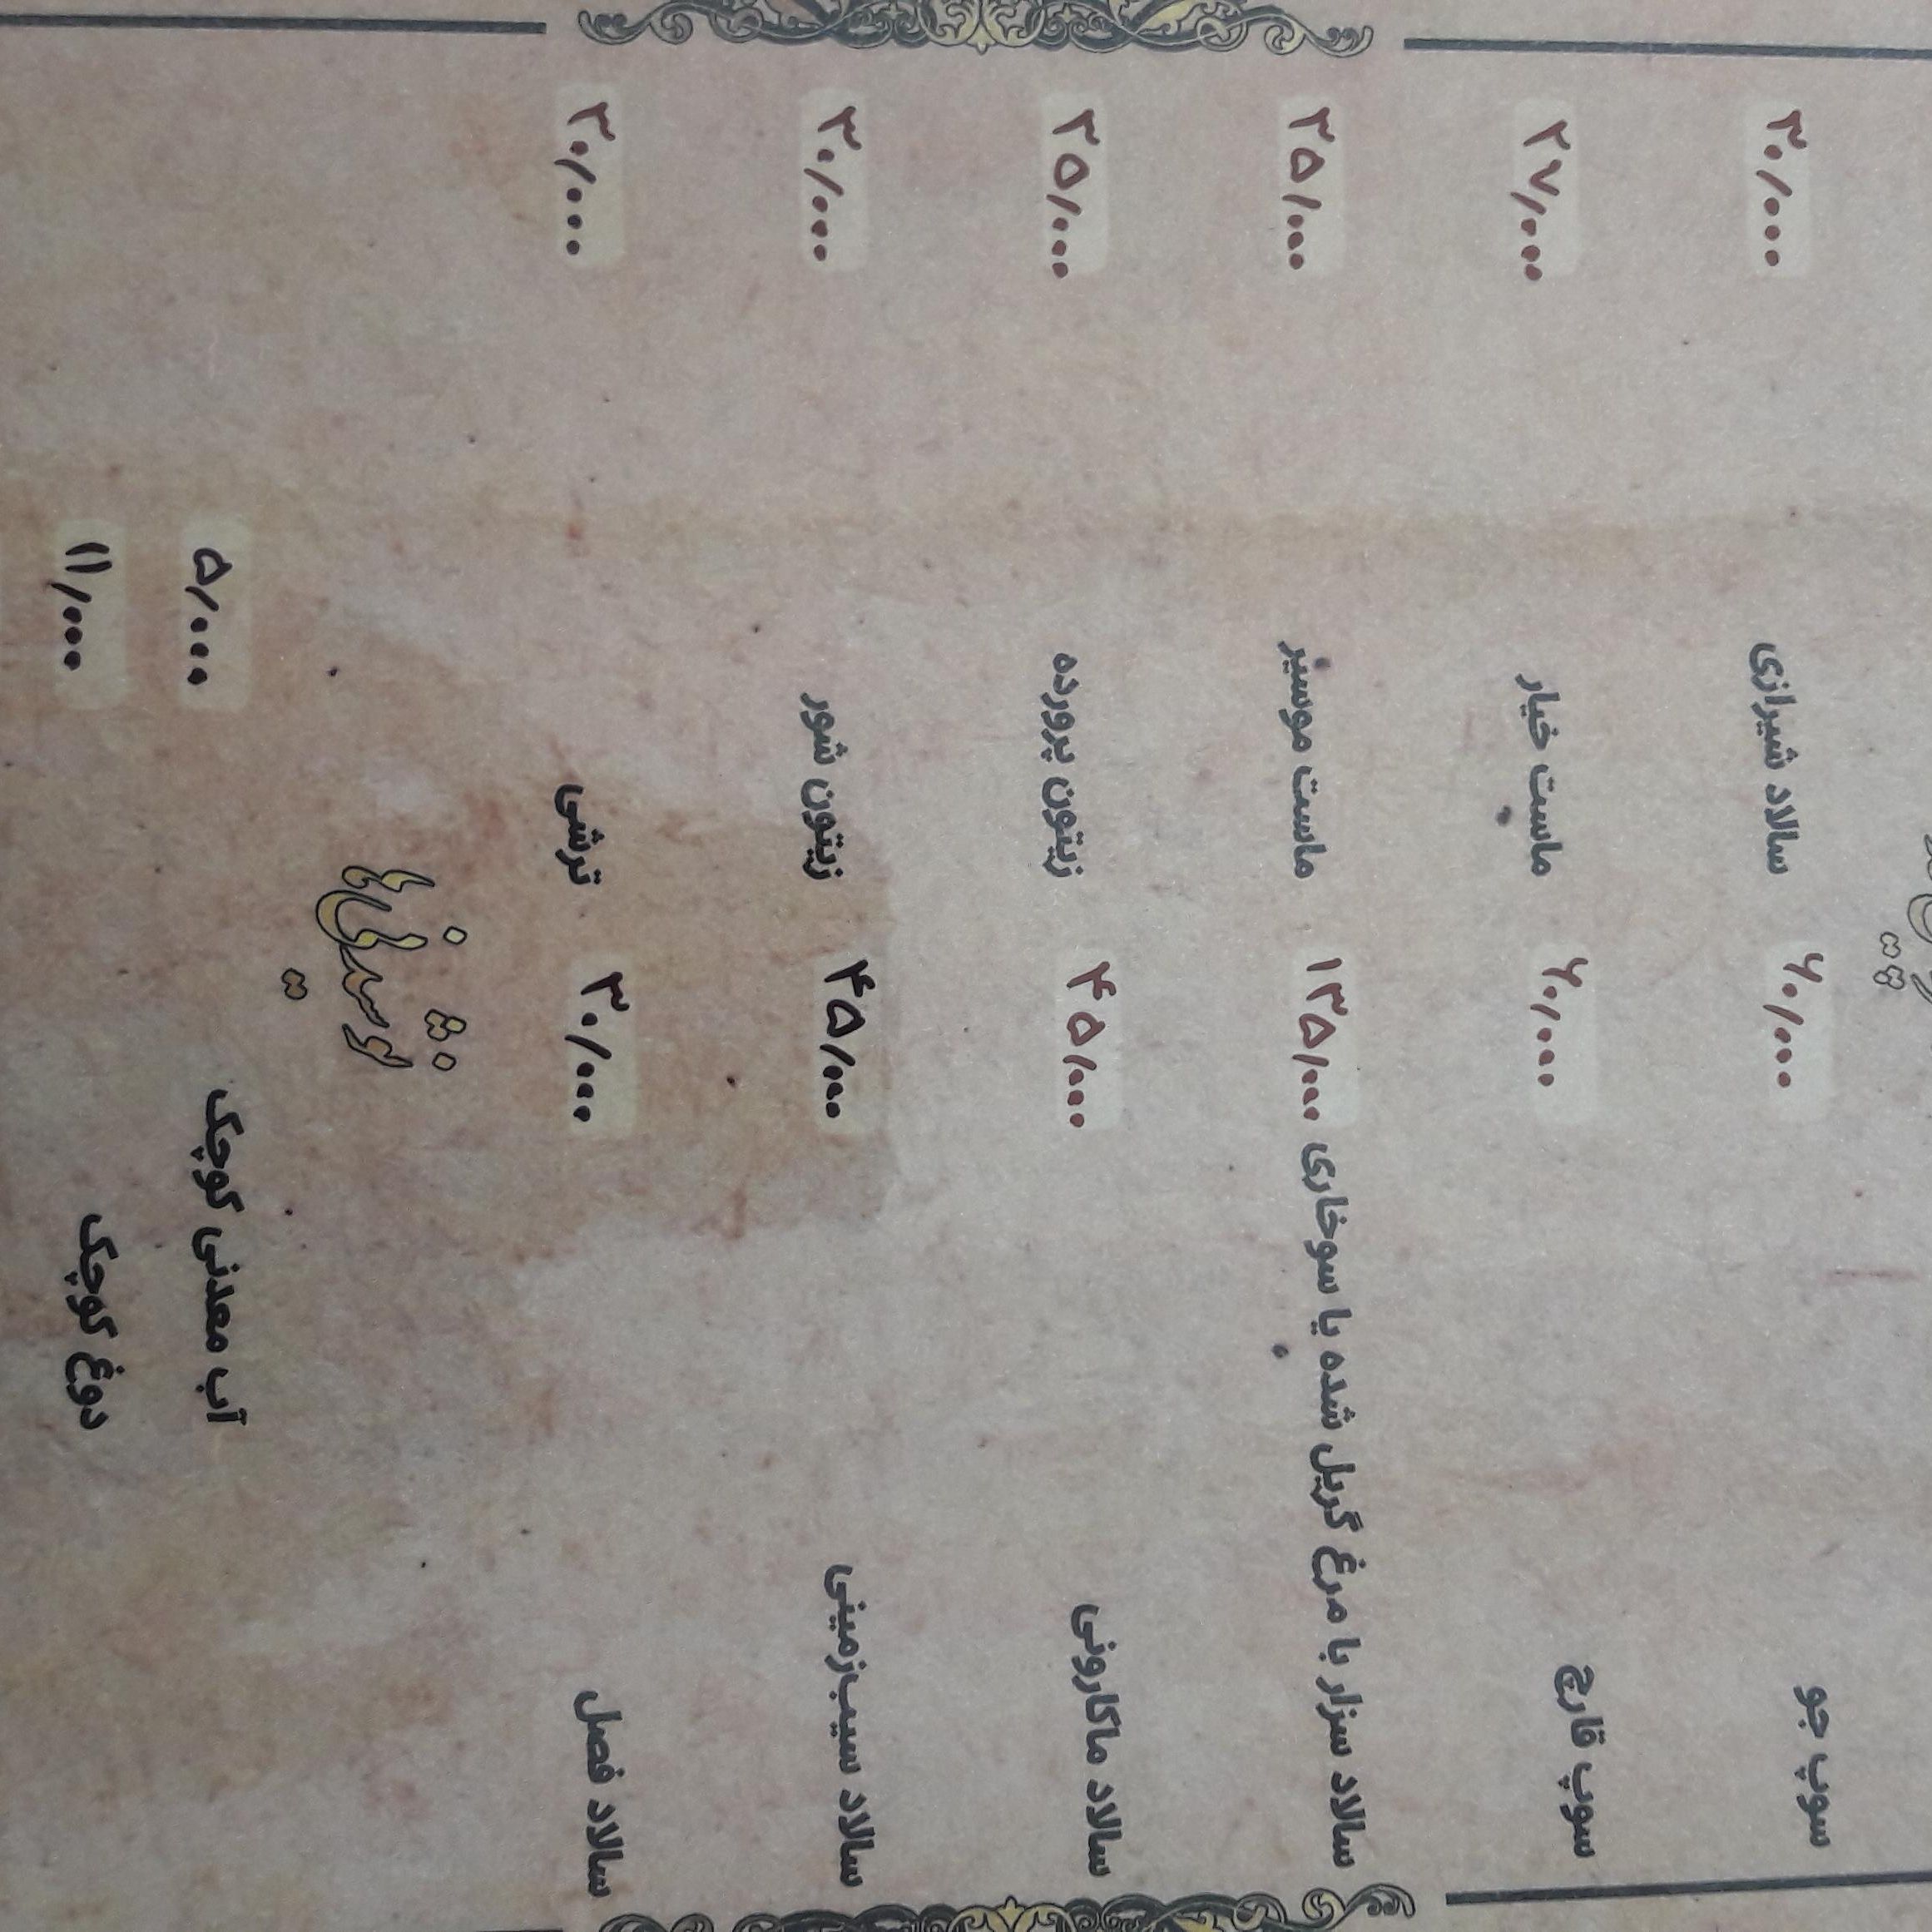 سوپ جو ۶۰/۰۰۰ سالاد شیرازی ۳۰/۰۰۰
سوپ قارچ ۶۰/۰۰۰ ماست خیار ۲۷/۰۰۰
سالاد سزار با مرغ گریل شده یا سوخاری ۱۳۵/۰۰۰ ماست موسیر ۳۵/۰۰۰
سالاد ماکارونی ۴۵/۰۰۰ زیتون پرورده ۳۵/۰۰۰
سالاد سیب‌زمینی ۴۵/۰۰۰ زیتون شور ۳۰/۰۰۰
سالاد فصل ۳۰/۰۰۰ ترشی ۳۰/۰۰۰
نوشیدنی‌ها
آب معدنی کوچک ۵/۰۰۰
دوغ کوچک ۱۱/۰۰۰